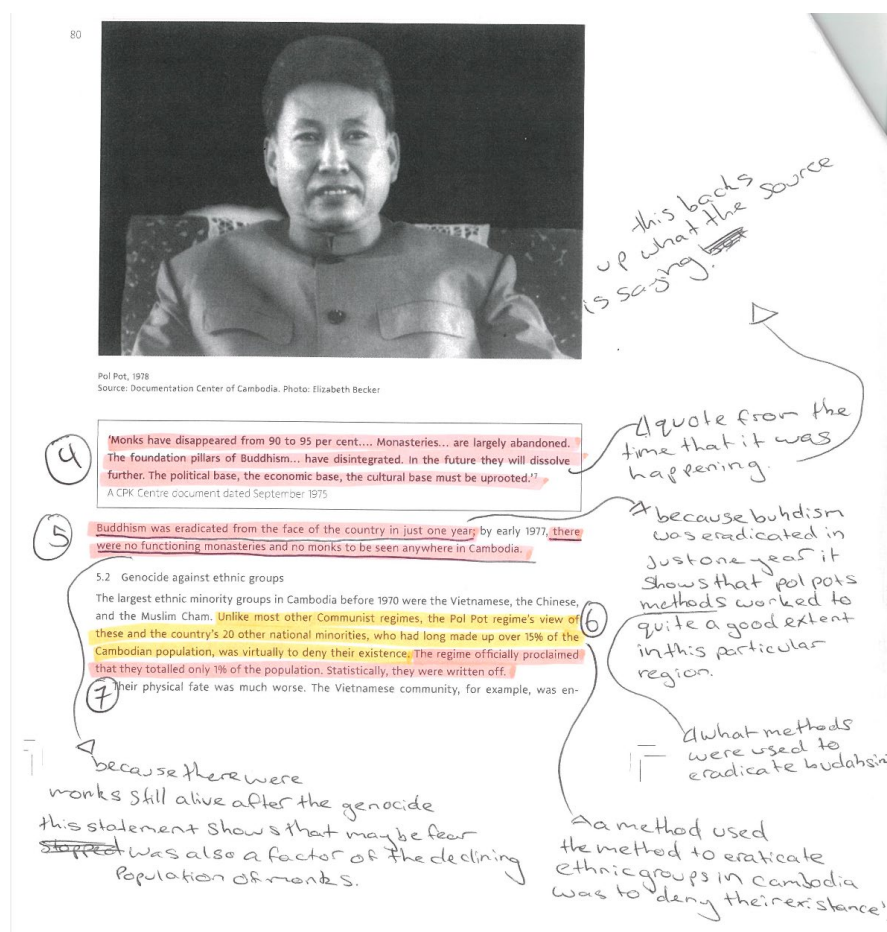 80
this backs
up what the source
is saying.
Pol Pot, 1978
Source: Documentation Center of Cambodia. Photo: Elizabeth Becker
4
'Monks have disappeared from 90 to 95 per cent.... Monasteries... are largely abandoned.
The foundation pillars of Buddhism... have disintegrated. In the future they will dissolve
further. The political base, the economic base, the cultural base must be uprooted.'⁷
A CPK Centre document dated September 1975
A quote from the
time that it was
happening.
5
Buddhism was eradicated from the face of the country in just one year; by early 1977, there
were no functioning monasteries and no monks to be seen anywhere in Cambodia.
because buhdism
was eradicated in
just one year it
shows that pol pots
methods worked to
quite a good extent
in this particular
region.
5.2 Genocide against ethnic groups
The largest ethnic minority groups in Cambodia before 1970 were the Vietnamese, the Chinese,
and the Muslim Cham. Unlike most other Communist regimes, the Pol Pot regime's view of
these and the country's 20 other national minorities, who had long made up over 15% of the
Cambodian population, was virtually to deny their existence. The regime officially proclaimed
that they totalled only 1% of the population. Statistically, they were written off.
Their physical fate was much worse. The Vietnamese community, for example, was en-
6
7
what methods
were used to
eradicate budahsin
because there were
monks still alive after the genocide
this statement shows that maybe fear
stopped was also a factor of the declining
Population of monks.
a method used
the method to eraticate
ethnic groups in cambodia
was to 'deny their existance'